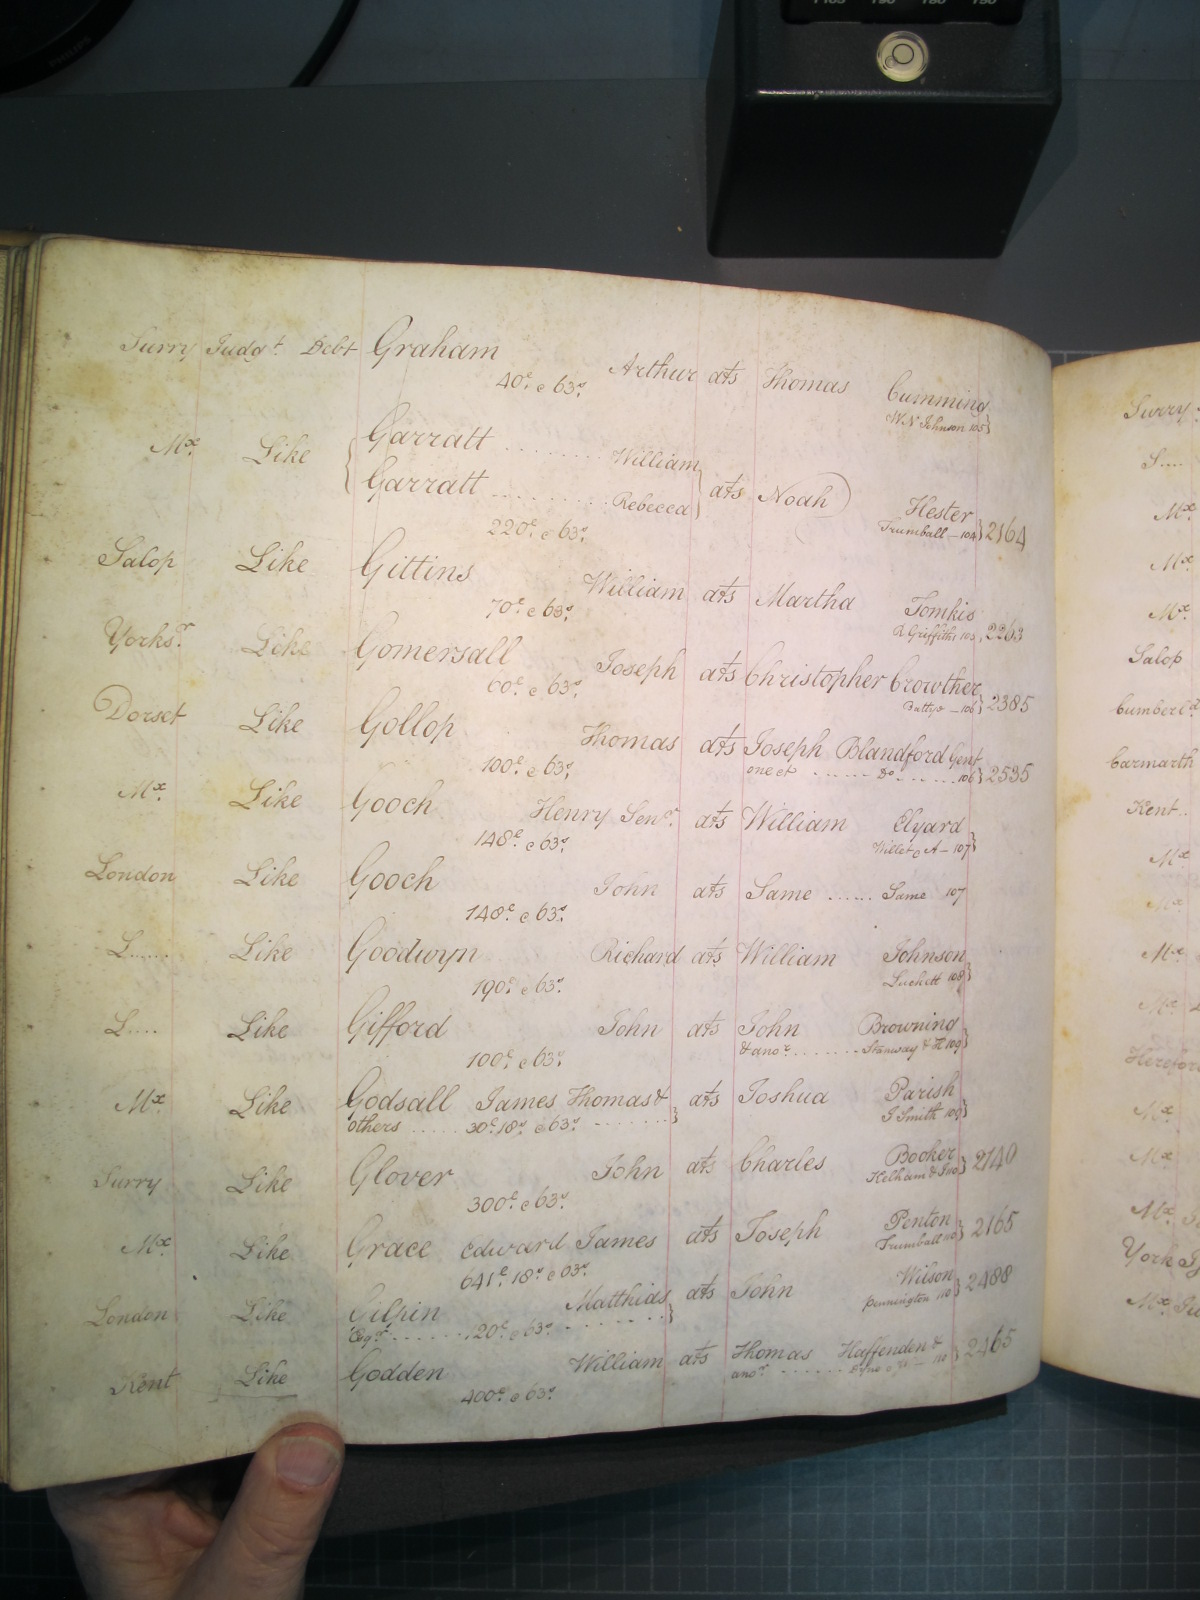 Surry Judgt. Debt Graham Arthur ats Thomas Cumming
40£. e 63s. W N Johnson 105}
Mx. Like { Garratt ........ William
Garratt ........ Rebecca } ats Noah) Hester
220£. e 63s. Trumball - 104 } 2164
Salop Like Gittins William ats Martha Tomkis
70£. e 63s. R Griffiths 105 } 2263
Yorksr. Like Gomersall Joseph ats Christopher Crowther
60£. e 63s. Battye - 106 } 2385
Dorset Like Gollop Thomas ats Joseph Blandford Gent
100£. e 63s. one et ...... Do ...... 106 } 2535
Mx. Like Gooch Henry Senr. ats William Elyard
148£. e 63s. Willet & A - 107}
London Like Gooch John ats Same ...... Same 107
148£. e 63s.
L...... Like Goodwyn Richard ats William Johnson
190£. e 63s. Luckett 108}
L.... Like Gifford John ats John Browning
100£. e 63s. & anor. ....... Stanway & H 109}
Mx. Like Godsall James Thomas & ats Joshua Parish
others ..... 30£. 18s. e 63s. ....... } J Smith 109}
Surry Like Glover John ats Charles Booker
300£. e 63s. Kelham & 110 } 2140
Mx. Like Grace Edward James ats Joseph Penton
641£. 18s. e 63s. Trumball 110 } 2165
London Like Gilpin Matthias ats John Wilson
Esqr. ...... 120£. e 63s. ...... } Pennington 110 } 2488
Kent Like Godden William ats Thomas Haffenden &
400£. e 63s. anor. ...... 110 } 2465
Surry
L....
Mx.
Mx.
Mx.
Salop
Cumberld
Carmarth
Kent..
Mx
Mx
Mx.
Mx.
Hereford
Mx.
Mx.
Mx.
York
Mx.
PHILIPS